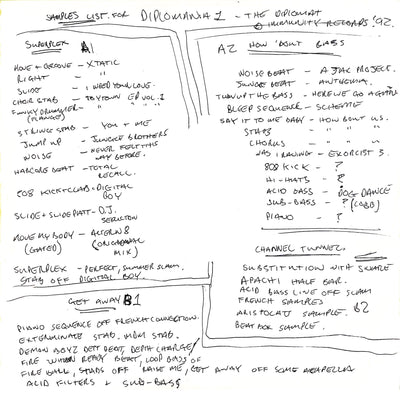 SAMPLES LIST FOR DIPLOMANIA 1 - THE DIPLOMAT
IMMUNITY RECORDS '92.
SUPERPLEX A1
MOVE + GROOVE - X STATIC
RIGHT - " "
SLIDE - I NEED YOUR LOVE.
CHOIR STAB - TOYTOWN EP VOL. 2
FUNKY DRUMMER -
(FLANGE)
STRING STAB - YOU + ME
JUMP UP - JUNGLE BROTHERS
NOISE - NEVER FELT THIS
WAY BEFORE.
HARDCORE BEAT - TOTAL
RECALL.
808 KICK + CLAB = DIGITAL
BOY
SLIDE + SLIDE PATT - D.J.
MOVE MY BODY - ALTERN 8
(GATED) (ORIGINAL
MIX)
SUPERPLEX - PERFECT, SUMMER SLAM.
STAB OFF DIGITAL BOY.
A2 HOW 'BOUT BASS
NOISE BEAT - A JAK PROJECT.
JUNGLE BEAT - ANTHEMIA.
TURN UP THE BASS - HERE WE GO AGAIN
BLEEP SEQUENCE - SCHEME
SAY IT TO ME BABY - HOW BOUT US.
STABS - " " "
CHORUS - " " "
WAS I RAVING - EXORCIST 3.
808 KICK - ?
HI-HATS - ?
ACID BASS - DOG DANCE
SUB-BASS - ?
PIANO - ?
CHANNEL TUNNEL
SUBSTITUTION WITH SAMPLE
APACHI HALF BAR.
ACID BASS LINE OFF SLAM
FRENCH SAMPLES
ARISTOCATS SAMPLE. B2
BEAT BOX SAMPLE.
GET AWAY B1
PIANO SEQUENCE OFF FRENCH CONNECTION.
EXTERMINATE STAB. MDM STAB.
DEMON BOYZ DETT BEAT, DEPTH CHARGE/
FIRE WHEN READY BEAT, LOOP BASS OF
FIRE BALL, STABS OFF RAISE ME, GET AWAY OFF SOME ACAPELLA
ACID FILTERS + SUB-BASS